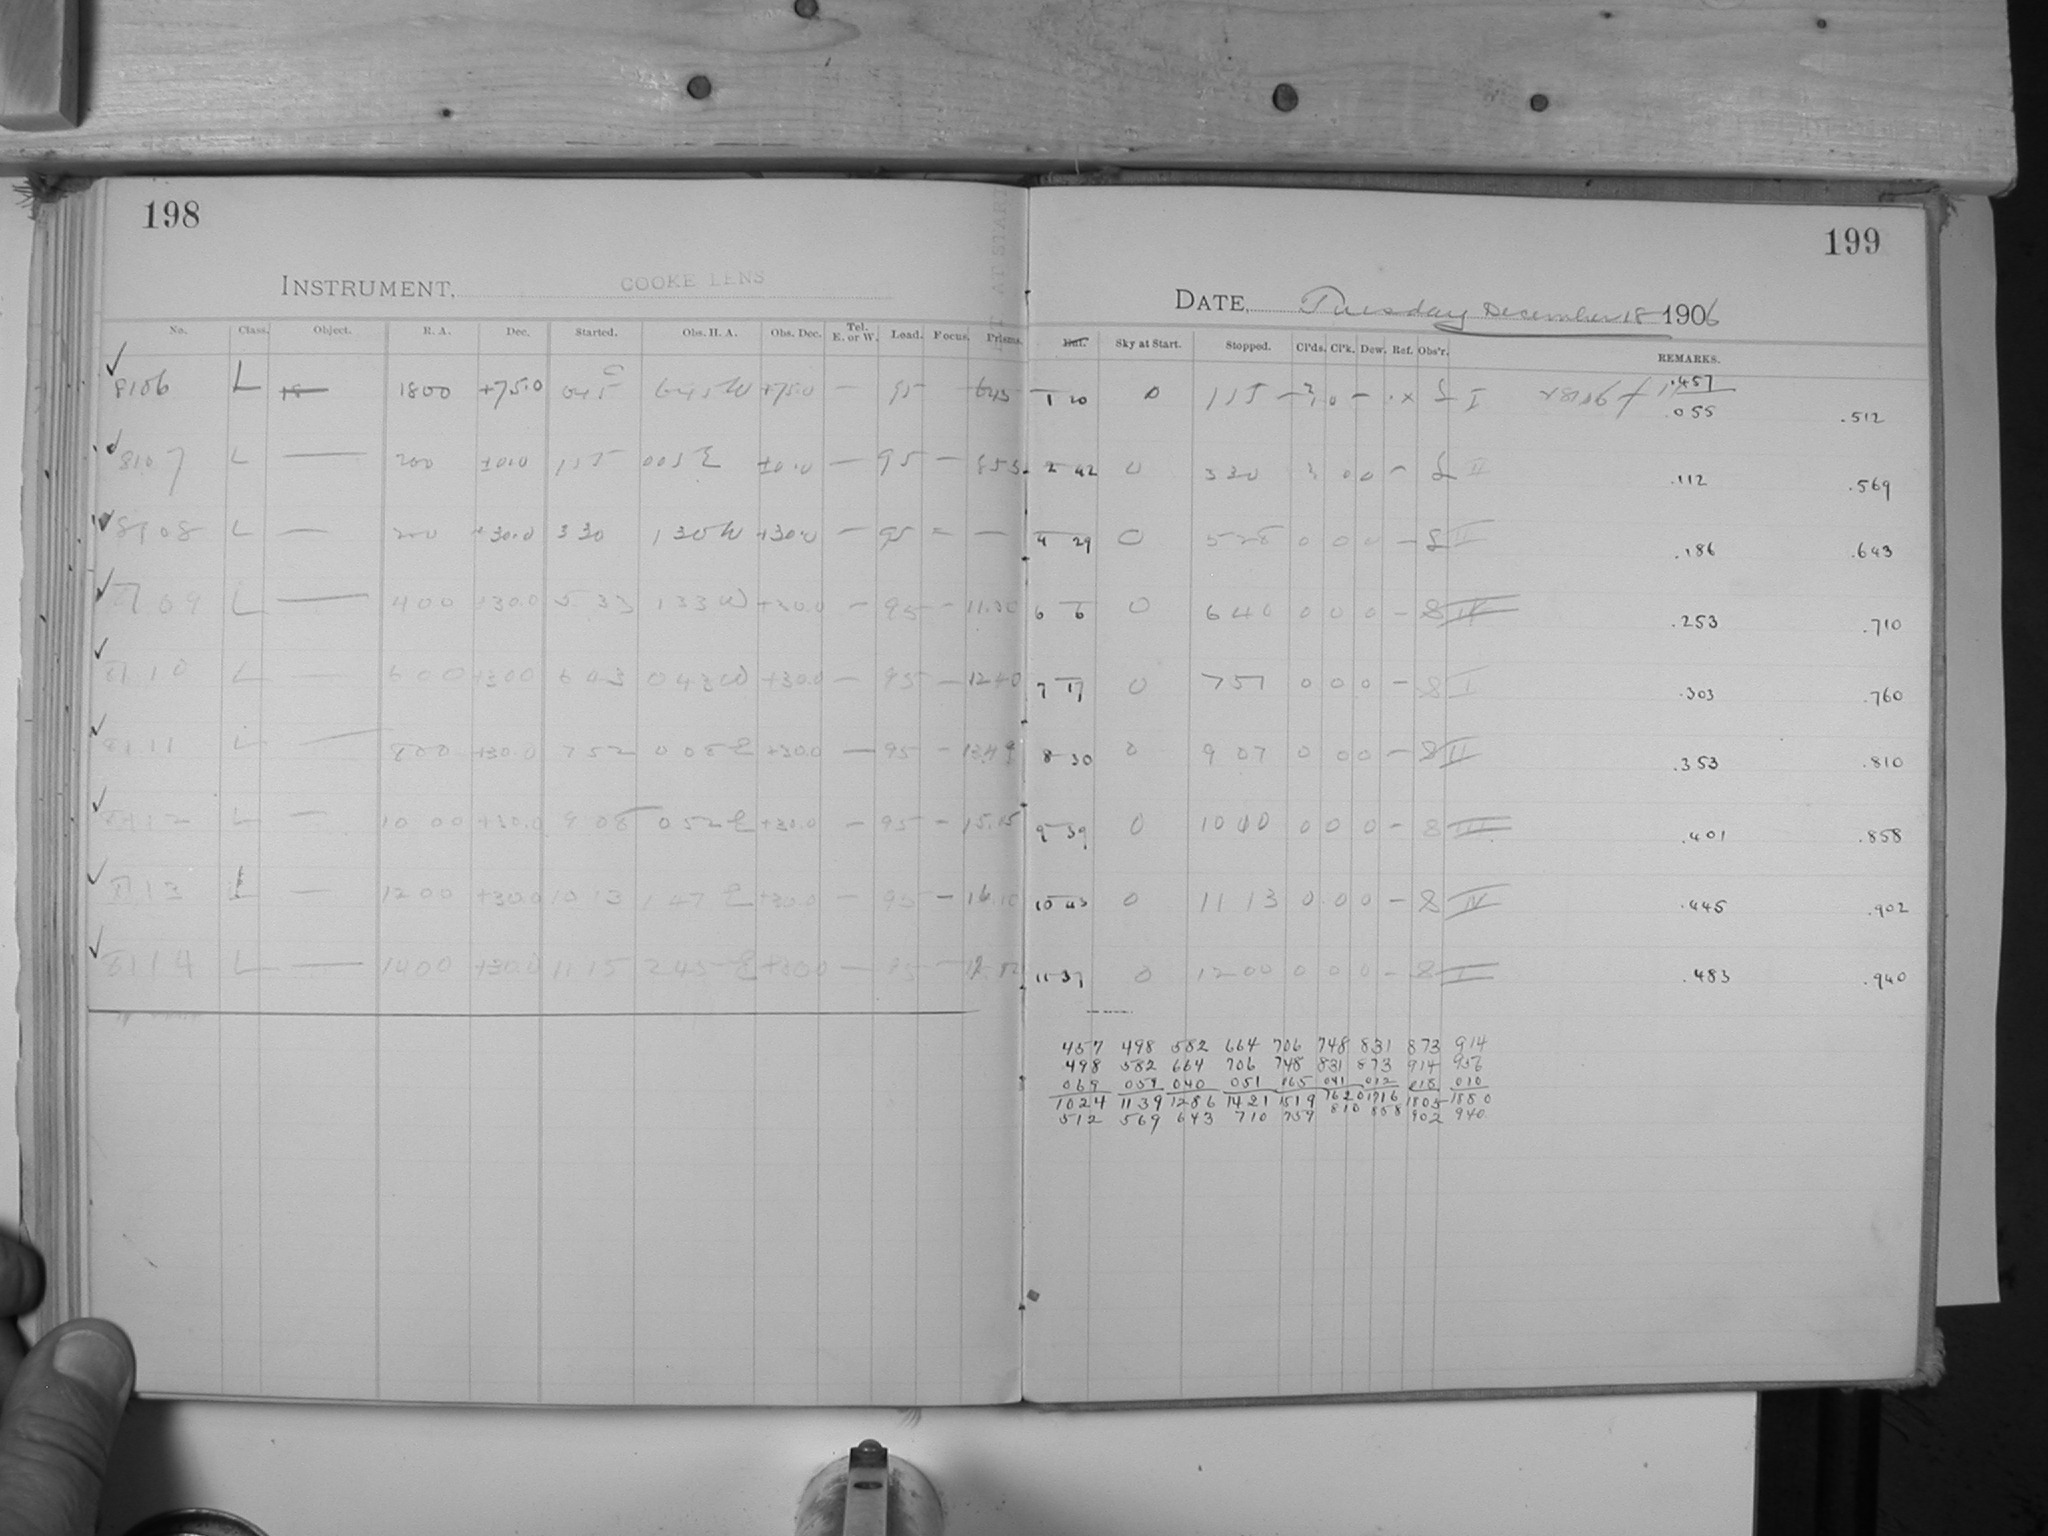 198
199
INSTRUMENT, COOKE LENS
DATE, Tuesday December 18 1906
No. Class. Object. R. A. Dec. Started. Obs. H. A. Obs. Dec. Tel. E. or W. Load. Focus. Prisms. Dur. Sky at Start. Stopped. Cl'ds. Cl'k. Dew. Ref. Obs'r. REMARKS.
8106 L 1800 +75.0 645 645W +75.0 — 95 645 1 20 0 155 I .457 .055 .512
8107 L — 200 155 005E — 95 — 853 2 42 0 330 0 0 — II .112 .569
8108 L — 200 +30.0 330 130W +30.0 — 95 — — 4 29 0 528 0 0 0 — .186 .643
8109 L — 400 +30.0 533 133W +30.0 — 95 — 11.30 6 6 0 640 0 0 0 — 8 IV .253 .710
8110 L — 600 +30.0 643 043W +30.0 — 95 — 1240 7 17 0 751 0 0 0 — 8 I .303 .760
8111 L — 800 +30.0 752 008E +30.0 — 95 — 13.49 8 30 0 907 0 0 0 — 8 II .353 .810
8112 L — 1000 +30.0 908 052E +30.0 — 95 — 15.15 9 39 0 1040 0 0 0 — 8 III .401 .858
8113 L — 1200 +30.0 1013 147E +30.0 — 95 — 16.10 10 43 0 1113 0 0 0 — 8 IV .445 .902
8114 L — 1400 +30.0 1115 245E +30.0 — 95 — 11 37 0 1200 0 0 0 — 8 I .483 .940
457 498 582 664 706 748 831 873 914
498 582 664 706 748 831 873 914 956
069 059 040 051 065 041 012 018 010
1024 1139 1286 1421 1519 1620 1716 1805 1880
512 569 643 710 759 810 858 902 940